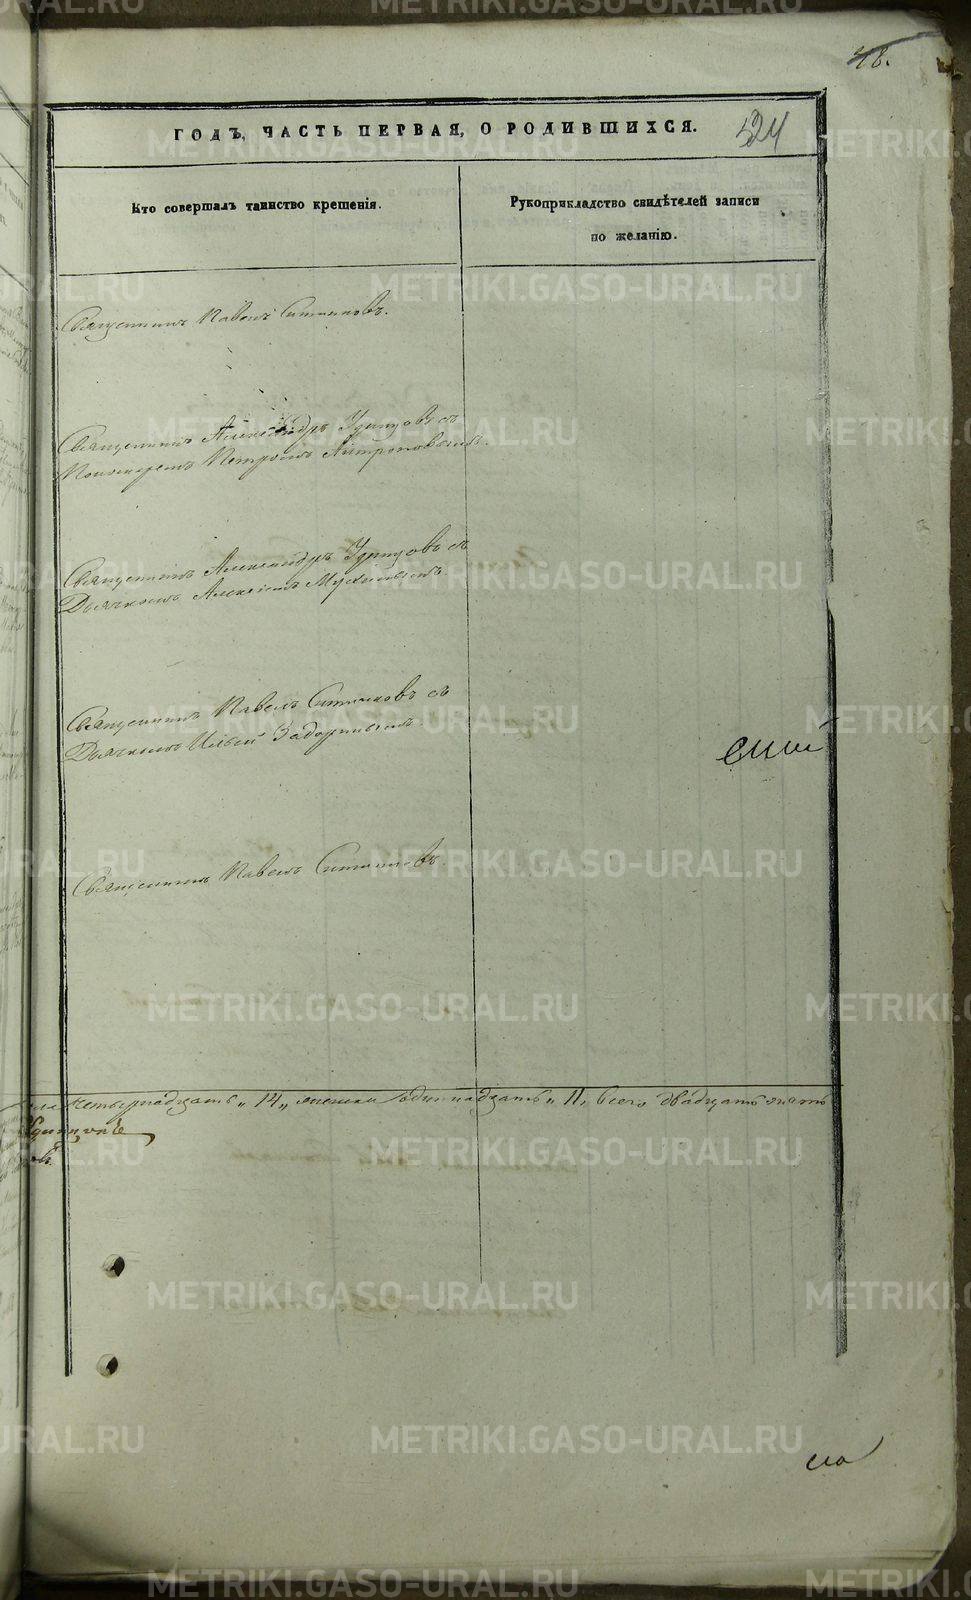 48.
524
ГОДЪ, ЧАСТЬ ПЕРВАЯ, О РОДИВШИХСЯ.
Кто совершалъ таинство крещенія.
Рукоприкладство свидѣтелей записи
по желанію.
Священникъ Павелъ Ситниковъ.
Священникъ Александръ Удинцовъ съ
Пономаремъ Петромъ
Священникъ Александръ Удинцовъ съ
Дьячкомъ Алексѣемъ
Священникъ Павелъ Ситниковъ съ
Дьячкомъ Ильей Задоринымъ
Священникъ Павелъ Ситниковъ
четырнадцать „14„ женска одиннадцать „11„ всего двадцать пять
Удинцовъ
METRIKI.GASO-URAL.RU